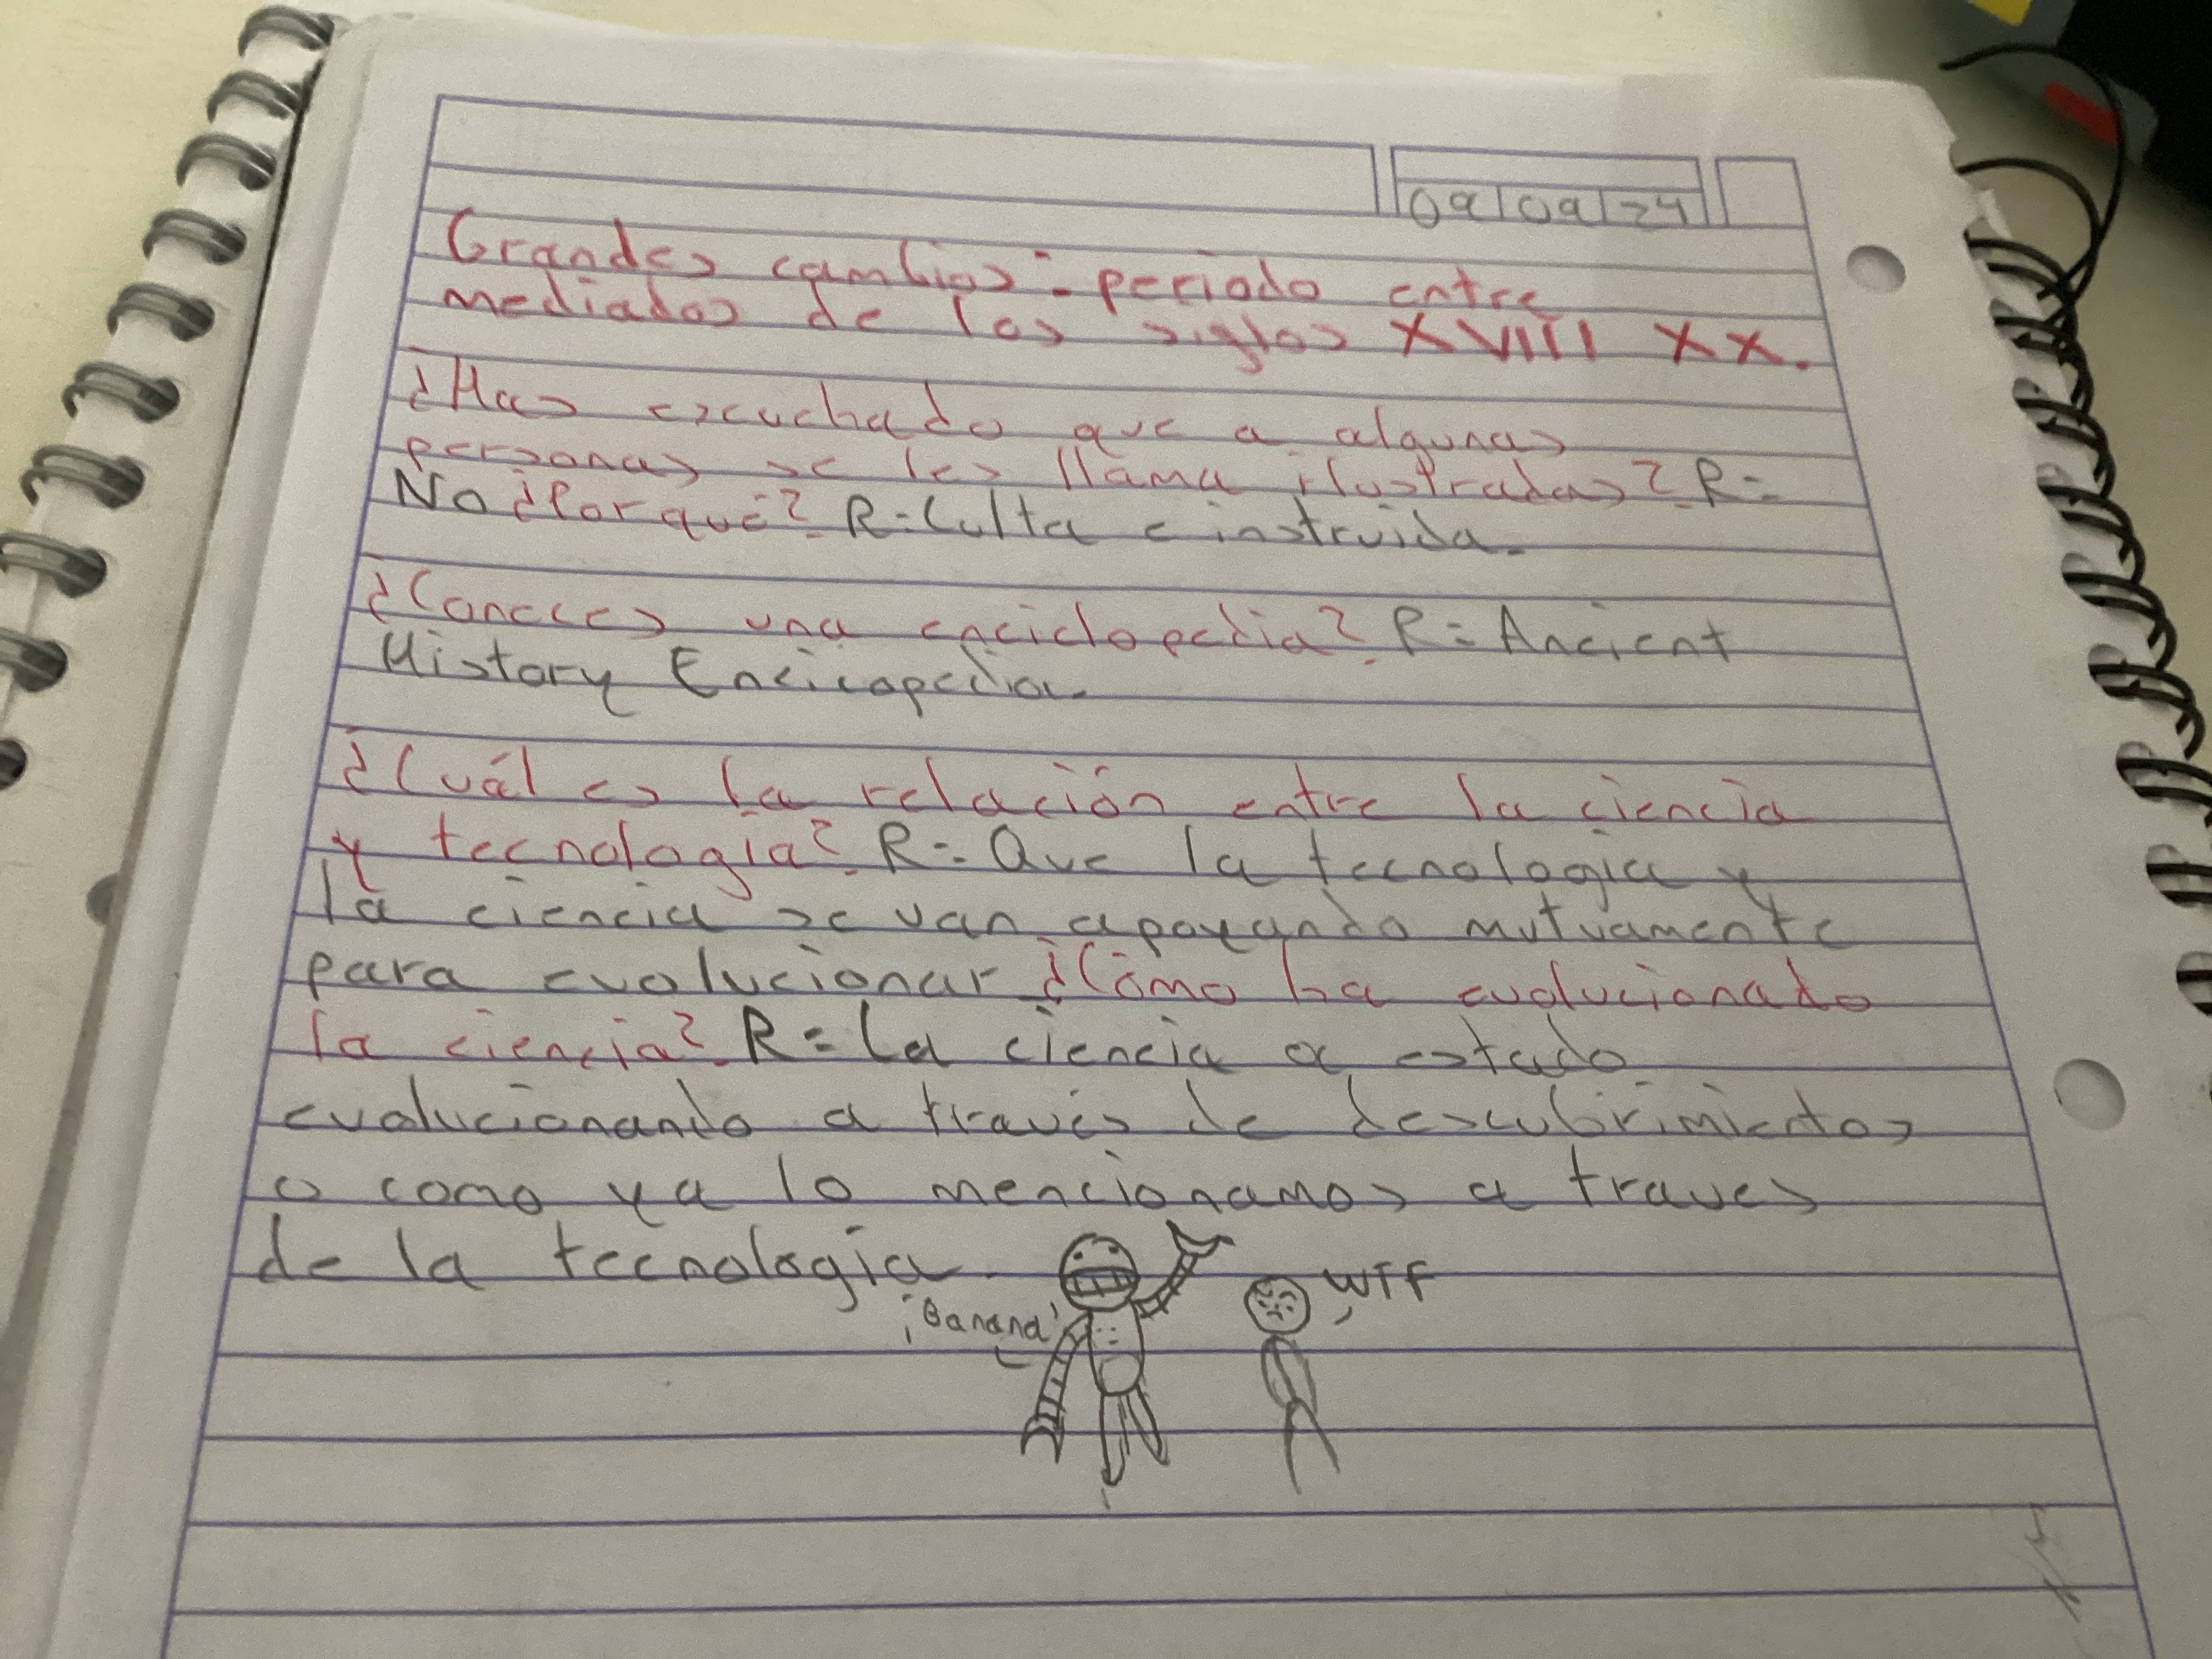 09 09 24
Grandes cambios: periodo entre
mediados de los siglos XVIII XX.
¿Has escuchado que a algunas
personas se les llama ilustradas? R=
No ¿Por qué? R=Culta e instruida.
¿Conoces una enciclopedia? R= Ancient
History Encicopedia.
¿Cuál es la relación entre la ciencia
y tecnología? R= Que la tecnologia y
la ciencia se van apoyando mutuamente
para evolucionar ¿Cómo ha evolucionado
la ciencia? R= La ciencia a estado
evolucionando a través de descubrimientos
o como ya lo mencionamos a traves
de la tecnologia.
WTF
¡Banana!